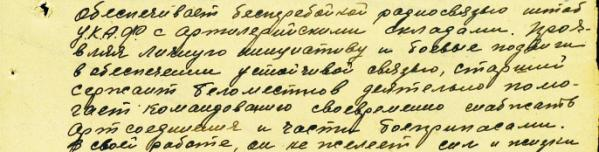 обеспечивает бесперебойной радиосвязью штаб
УКАФ с артилерийскими складами. Прояв-
вляя личную инициативу и боевые подвиги
в обеспечении устойчивой связью, старший
сержант Беломестнов деятельно помо-
гает командованию своевременно снабжать
артсоединения и части боеприпасами.
В своей работе, он не жалеет сил и жизни